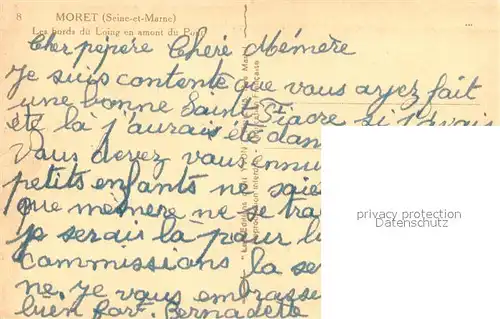 8 MORET (Seine-et-Marne)
Les bords du Loing en amont du Pont
Cher pépère Chère Mémère
Je suis contente que vous ayez fait
une bonne Saint Fiacre si j'avais
été là j'aurais été dan
Vous devez vous ennu
petits enfants ne soie
que mémère ne se tra
je serais la pour
commissions la se
ne. Je vous embrasse
bien fort. Bernadette
privacy protection
Datenschutz